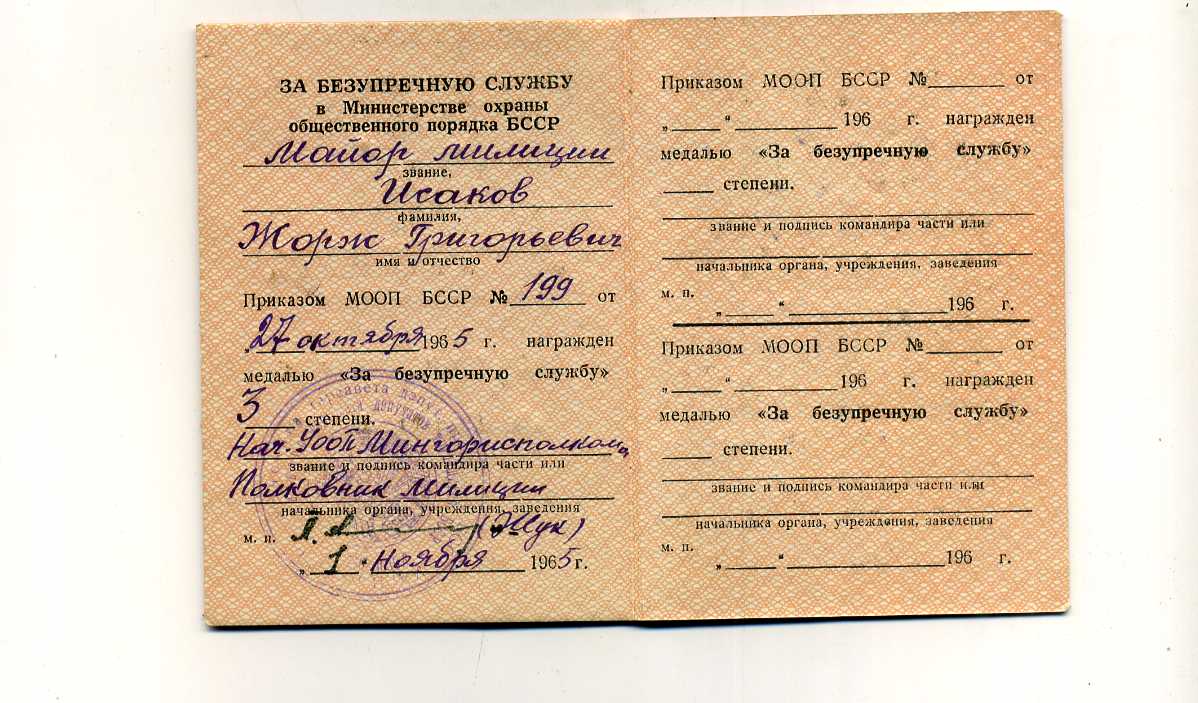 ЗА БЕЗУПРЕЧНУЮ СЛУЖБУ
в Министерстве охраны
общественного порядка БССР
Майор милиции
звание,
Исаков
фамилия,
Жорж Григорьевич
имя и отчество
Приказом МООП БССР № 199 от
„27 октября 1965 г. награжден
медалью «За безупречную службу»
3 степени.
Нач. УООП Мингорисполкома
звание и подпись командира части или
Полковник милиции
начальника органа, учреждения, заведения
м. п. (Жук)
„1“ Ноября 1965 г.
Приказом МООП БССР №________ от
„_____“___________ 196 г. награжден
медалью «За безупречную службу»
_____ степени.
звание и подпись командира части или
начальника органа, учреждения, заведения
м. п.
„_____“________________196 г.
Приказом МООП БССР №________ от
„_____“___________196 г. награжден
медалью «За безупречную службу»
_____ степени.
звание и подпись командира части или
начальника органа, учреждения, заведения
м. п.
„_____“________________196 г.